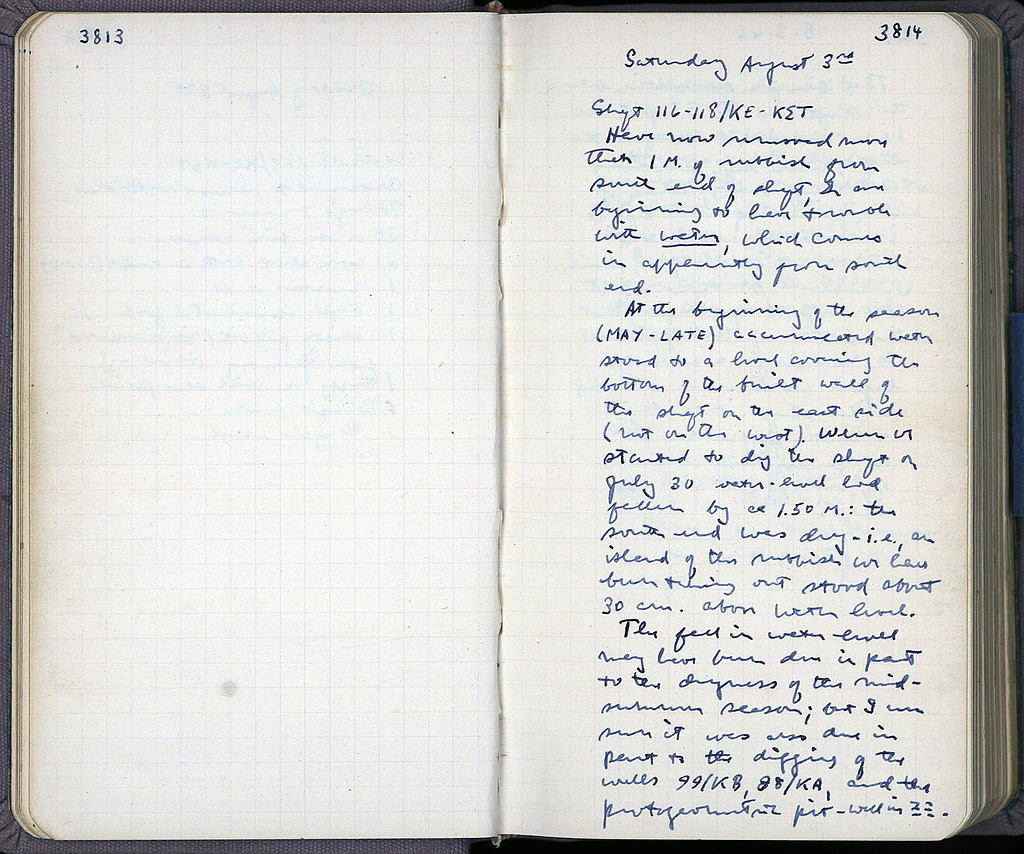 3813
3814
Saturday August 3rd
Shaft 116-118/ΚΕ-ΚΣΤ
Have now removed more
than 1 M. of rubbish from
south end of shaft, & am
beginning to have trouble
with water, which comes
in apparently from south
end.
At the beginning of the season
(MAY-LATE) accumulated water
stood to a level covering the
bottom of the built wall of
the shaft on the east side
(not on the west). When we
started to dig the shaft on
July 30 water-level had
fallen by ca 1.50 M.: the
south end was dry - i.e., an
island of the rubbish we have
been taking out stood about
30 cm. above water level.
The fall in water-level
may have been due in part
to the dryness of the mid-
summer season; but I am
sure it was also due in
part to the digging of the
wells 99/ΚΒ, 88/ΚΑ, and the
protogeometric pit-well in ΞΞ.